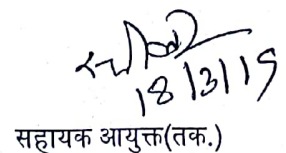 18/3/19
सहायक आयुक्त(तक.)